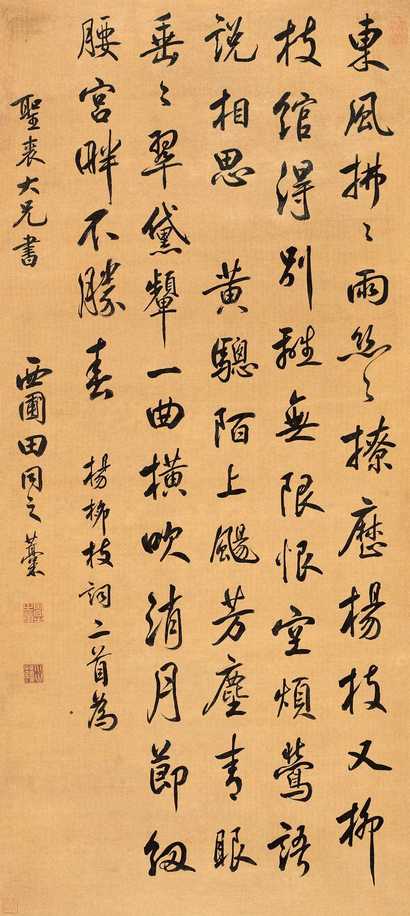 東風拂〻雨絲〻撩歷楊枝又柳
枝綰得別離無限恨空煩鶯語
說相思 黃驄陌上颺芳塵青眼
垂〻翠黛顰一曲橫吹消月節細
腰宮畔不勝春 楊柳枝詞二首為
聖裘大兄書 西圃田同之藁